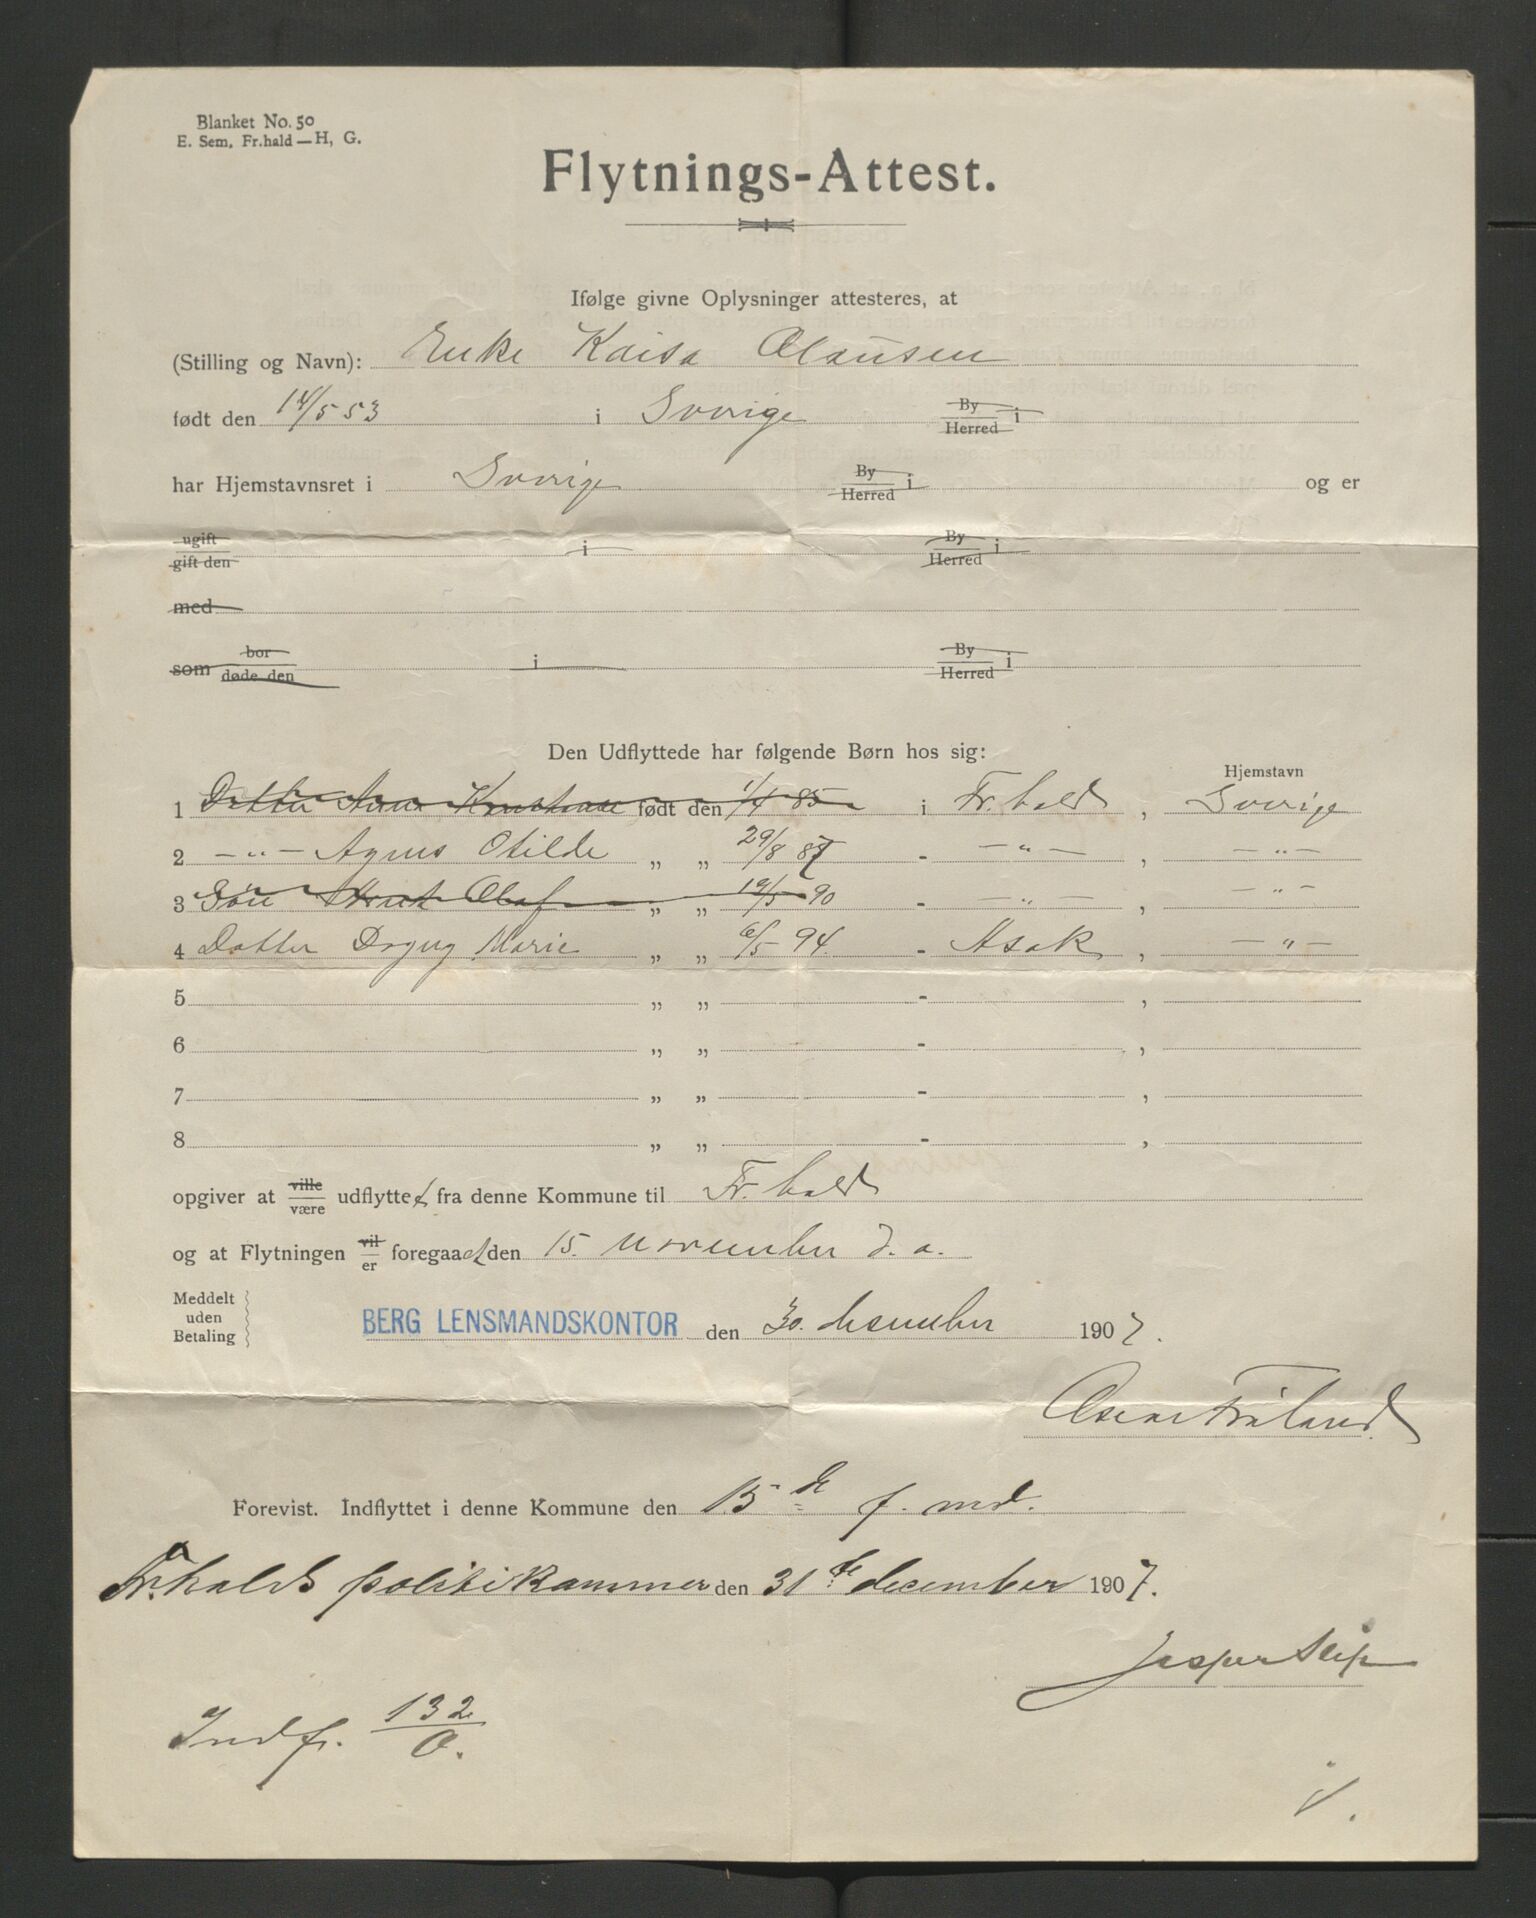 Blanket No. 50
E. Sem, Fr.hald—H, G.
Flytnings-Attest.
Ifølge givne Oplysninger attesteres, at
(Stilling og Navn): Enke Kaisa Olausen
født den 14/5 53 i Sverige By Herred i
har Hjemstavnsret i Sverige By Herred i og er
ugift gift den i By Herred i
med
som bor døde den i By Herred i
Den Udflyttede har følgende Børn hos sig:
Hjemstavn
1 Datter Anna Konstanse født den 1/4 85 i Fr.hald, Sverige
2 —„— Agnes Otilde „ „ 29/8 87 - —„—, —„—
3 Søn Olaf „ „ 19/5 90 - —„—, —„—
4 Datter Dagny Marie „ „ 6/5 94. - Asak, —„—
5 „ „ - ,
6 „ „ - ,
7 „ „ - ,
8 „ „ - ,
opgiver at ville være udflyttet fra denne Kommune til Fr.hald
og at Flytningen vil er foregaaet den 15. november d. a.
Meddelt uden Betaling
BERG LENSMANDSKONTOR den 30. desember 1907.
Forevist. Indflyttet i denne Kommune den 15de f. md.
Fr.halds politikammer den 31te december 1907.
Jesper Seip
Indfl. 132/O.